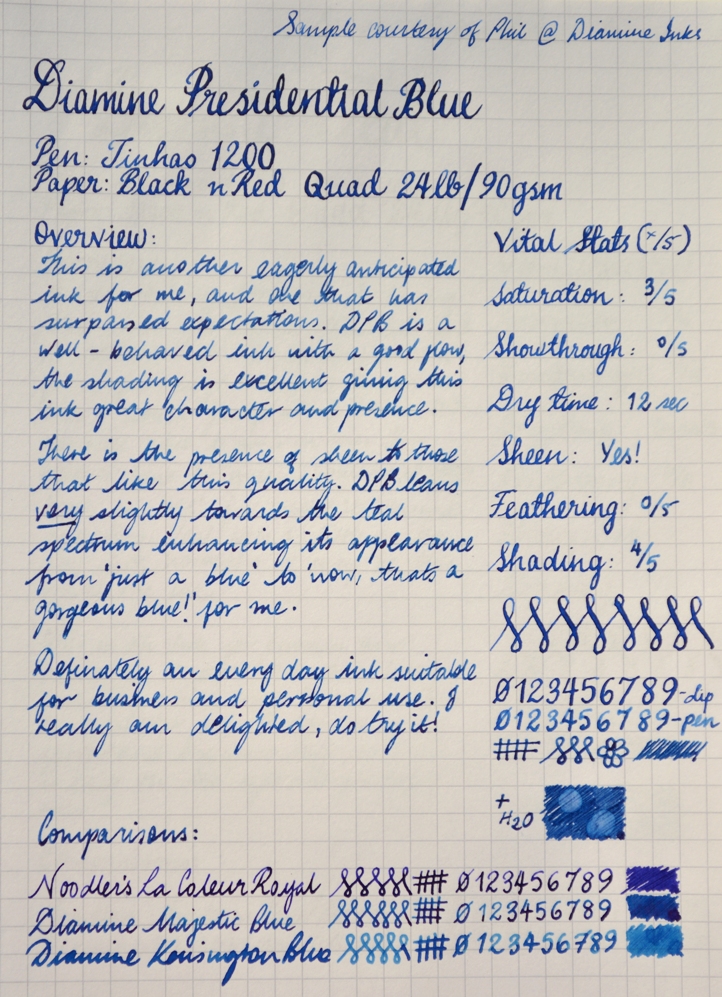 Sample courtesy of Phil @ Diamine Inks
Diamine Presidential Blue
Pen: Jinhao 1200
Paper: Black n Red Quad 24lb/90gsm
Overview:
This is another eagerly anticipated
ink for me, and one that has
surpassed expectations. DPB is a
well-behaved ink with a good flow,
the shading is excellent giving this
ink great character and presence.
There is the presence of sheen to those
that like this quality. DPB leans
very slightly towards the teal
spectrum enhancing its appearance
from 'just a blue' to 'wow, thats a
gorgeous blue!' for me.
Definately an every day ink suitable
for business and personal use. I
really am delighted, do try it!
Vital Stats (x/5)
Saturation: 3/5
Showthrough: 0/5
Dry time: 12 sec
Sheen: Yes!
Feathering: 0/5
Shading: 4/5
Ø123456789-dip
Ø123456789-pen
+ H2O
Comparisons:
Noodler's La Coleur Royal Ø123456789
Diamine Majestic Blue Ø123456789
Diamine Kensington Blue Ø123456789